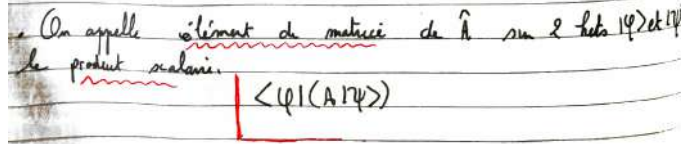 . On appelle élément de matrice de Â sur 2 kets |φ> et |ψ
le produit scalaire.
<φ|(A|ψ>)